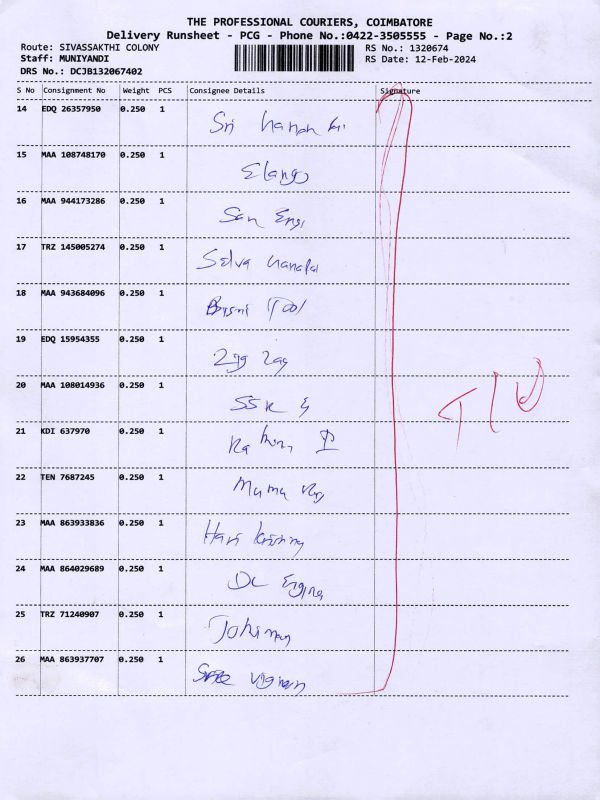 THE PROFESSIONAL COURIERS, COIMBATORE
Delivery Runsheet - PCG - Phone No.:0422-3505555 - Page No.:2
Route: SIVASSAKTHI COLONY RS No.: 1320674
Staff: MUNIYANDI RS Date: 12-Feb-2024
DRS No.: DCJB132067402
S No Consignment No Weight PCS Consignee Details Signature
14 EDQ 26357950 0.250 1 Sri
15 MAA 108748170 0.250 1 Elango
16 MAA 944173286 0.250 1 San Engi
17 TRZ 145005274 0.250 1 Selva
18 MAA 943684096 0.250 1
19 EDQ 15954355 0.250 1 Zig Zag
20 MAA 108014936 0.250 1 SSK
21 KDI 637970 0.250 1
22 TEN 7687245 0.250 1
23 MAA 863933836 0.250 1 Hari
24 MAA 864029689 0.250 1
25 TRZ 71240907 0.250 1
26 MAA 863937707 0.250 1